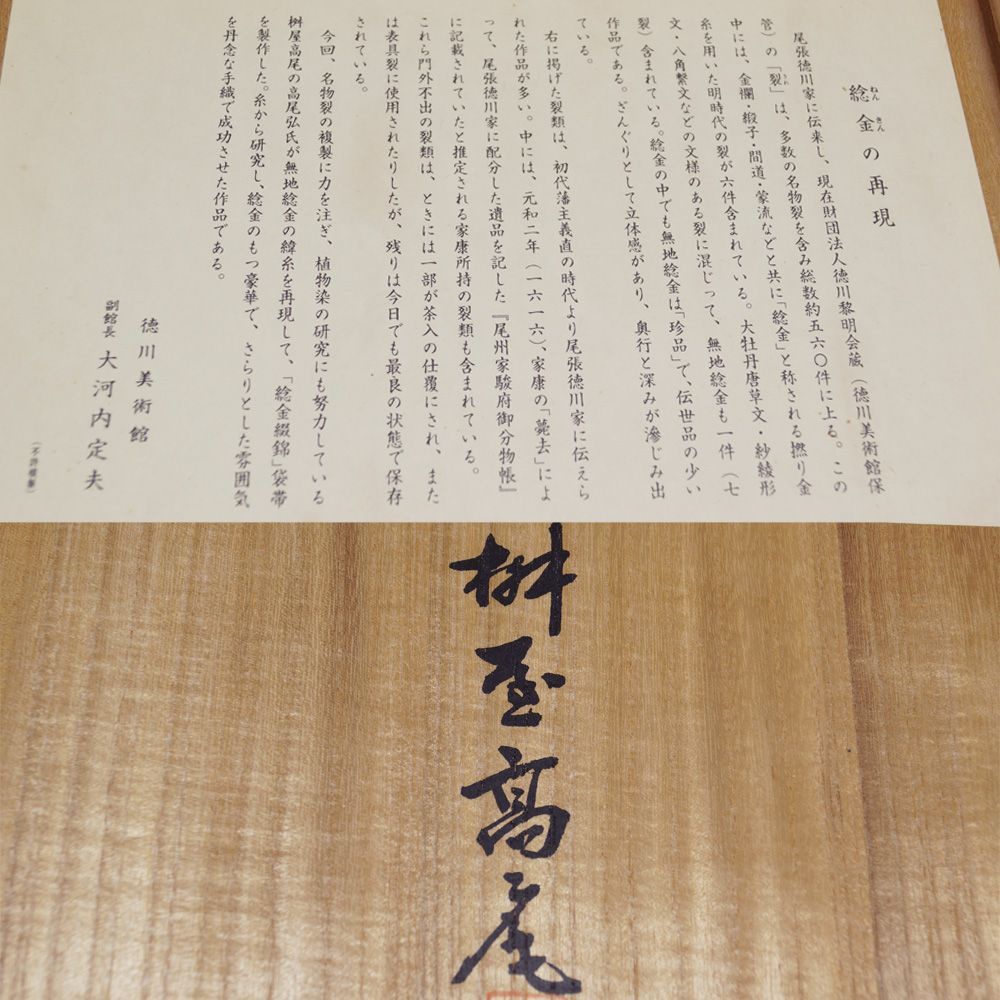 綛金の再現
ねんきん
尾張徳川家に伝来し、現在財団法人徳川黎明会蔵（徳川美術館保
管）の「裂」は、多数の名物裂を含み総数約五六〇件に上る。この
きれ
中には、金襴・緞子・間道・蒙流などと共に「綛金」と称される撚り金
糸を用いた明時代の裂が六件含まれている。大牡丹唐草文・紗綾形
文・八角繋文などの文様のある裂に混じって、無地綛金も一件（七
裂）含まれている。綛金の中でも無地綛金は「珍品」で、伝世品の少い
作品である。ざんぐりとして立体感があり、奥行と深みが滲じみ出
ている。
右に掲げた裂類は、初代藩主義直の時代より尾張徳川家に伝えら
れた作品が多い。中には、元和二年（一六一六）、家康の「薨去」によ
って、尾張徳川家に配分した遺品を記した『尾州家駿府御分物帳』
に記載されていたと推定される家康所持の裂類も含まれている。
これら門外不出の裂類は、ときには一部が茶入の仕覆にされ、また
は表具裂に使用されたりしたが、残りは今日でも最良の状態で保存
されている。
今回、名物裂の複製に力を注ぎ、植物染の研究にも努力している
桝屋高尾の高尾弘氏が無地綛金の緯糸を再現して、「綛金綴錦」袋帯
を製作した。糸から研究し、綛金のもつ豪華で、さらりとした雰囲気
を丹念な手織で成功させた作品である。
徳川美術館
副館長 大河内定夫
（不許複製）
桝屋高尾